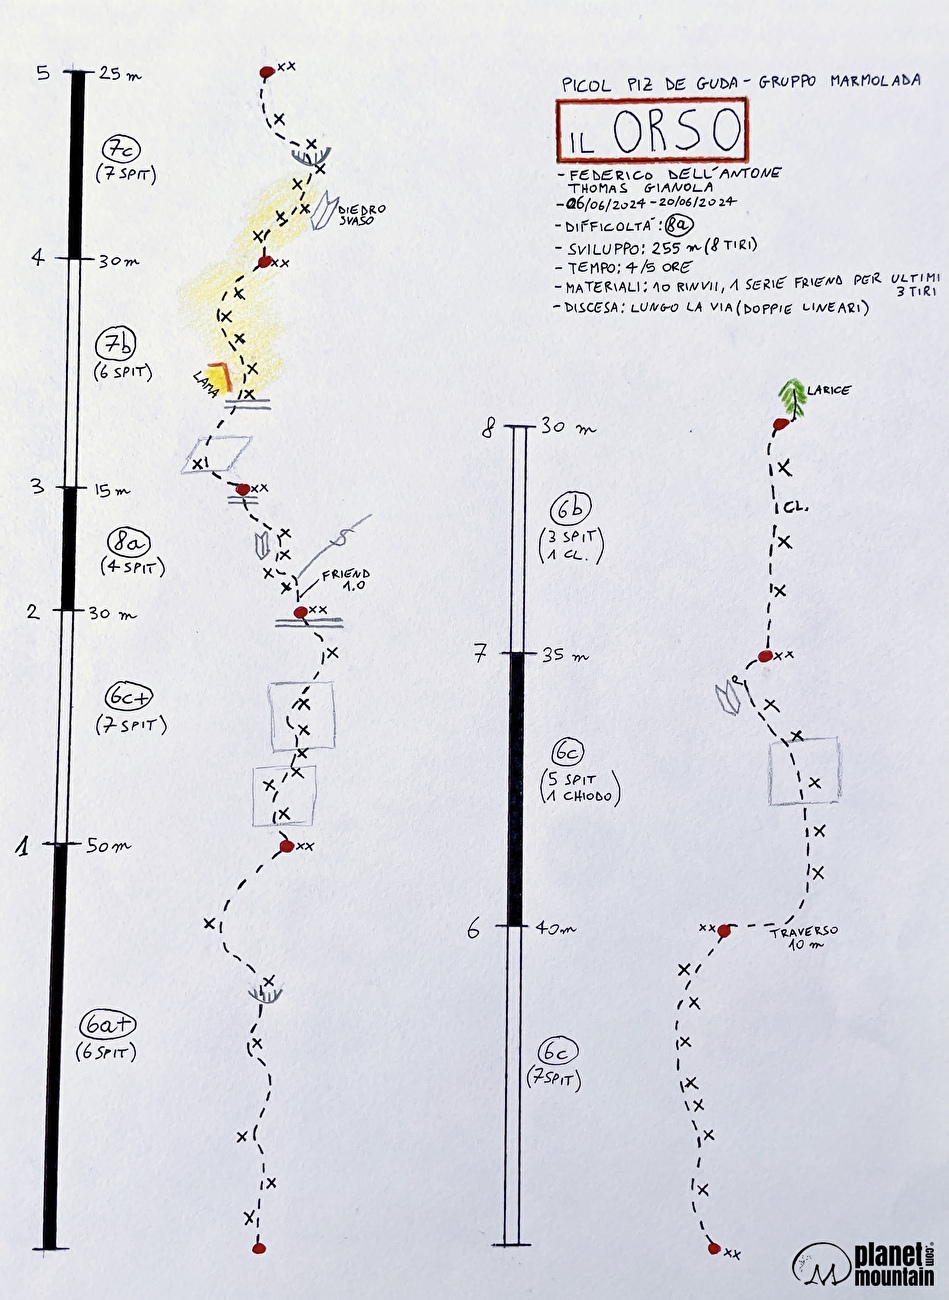 PICOL PIZ DE GUDA - GRUPPO MARMOLADA
IL ORSO
- FEDERICO DELL'ANTONE
THOMAS GIANOLA
- 06/06/2024 - 20/06/2024
- DIFFICOLTÀ: 8a
- SVILUPPO: 255 m (8 TIRI)
- TEMPO: 4/5 ORE
- MATERIALI: 10 RINVII, 1 SERIE FRIEND PER ULTIMI
3 TIRI
- DISCESA: LUNGO LA VIA (DOPPIE LINEARI)
5 25 m
7c
(7 SPIT)
DIEDRO
SVASO
4 30 m
7b
(6 SPIT)
LAMA
3 15 m
8a
(4 SPIT)
FRIEND
1.0
2 30 m
6c+
(7 SPIT)
1 50 m
6a+
(6 SPIT)
LARICE
8 30 m
6b
(3 SPIT
1 CL.)
CL.
7 35 m
6c
(5 SPIT
1 CHIODO)
6 40 m
TRAVERSO
10 m
6c
(7 SPIT)
planet
mountain
.com